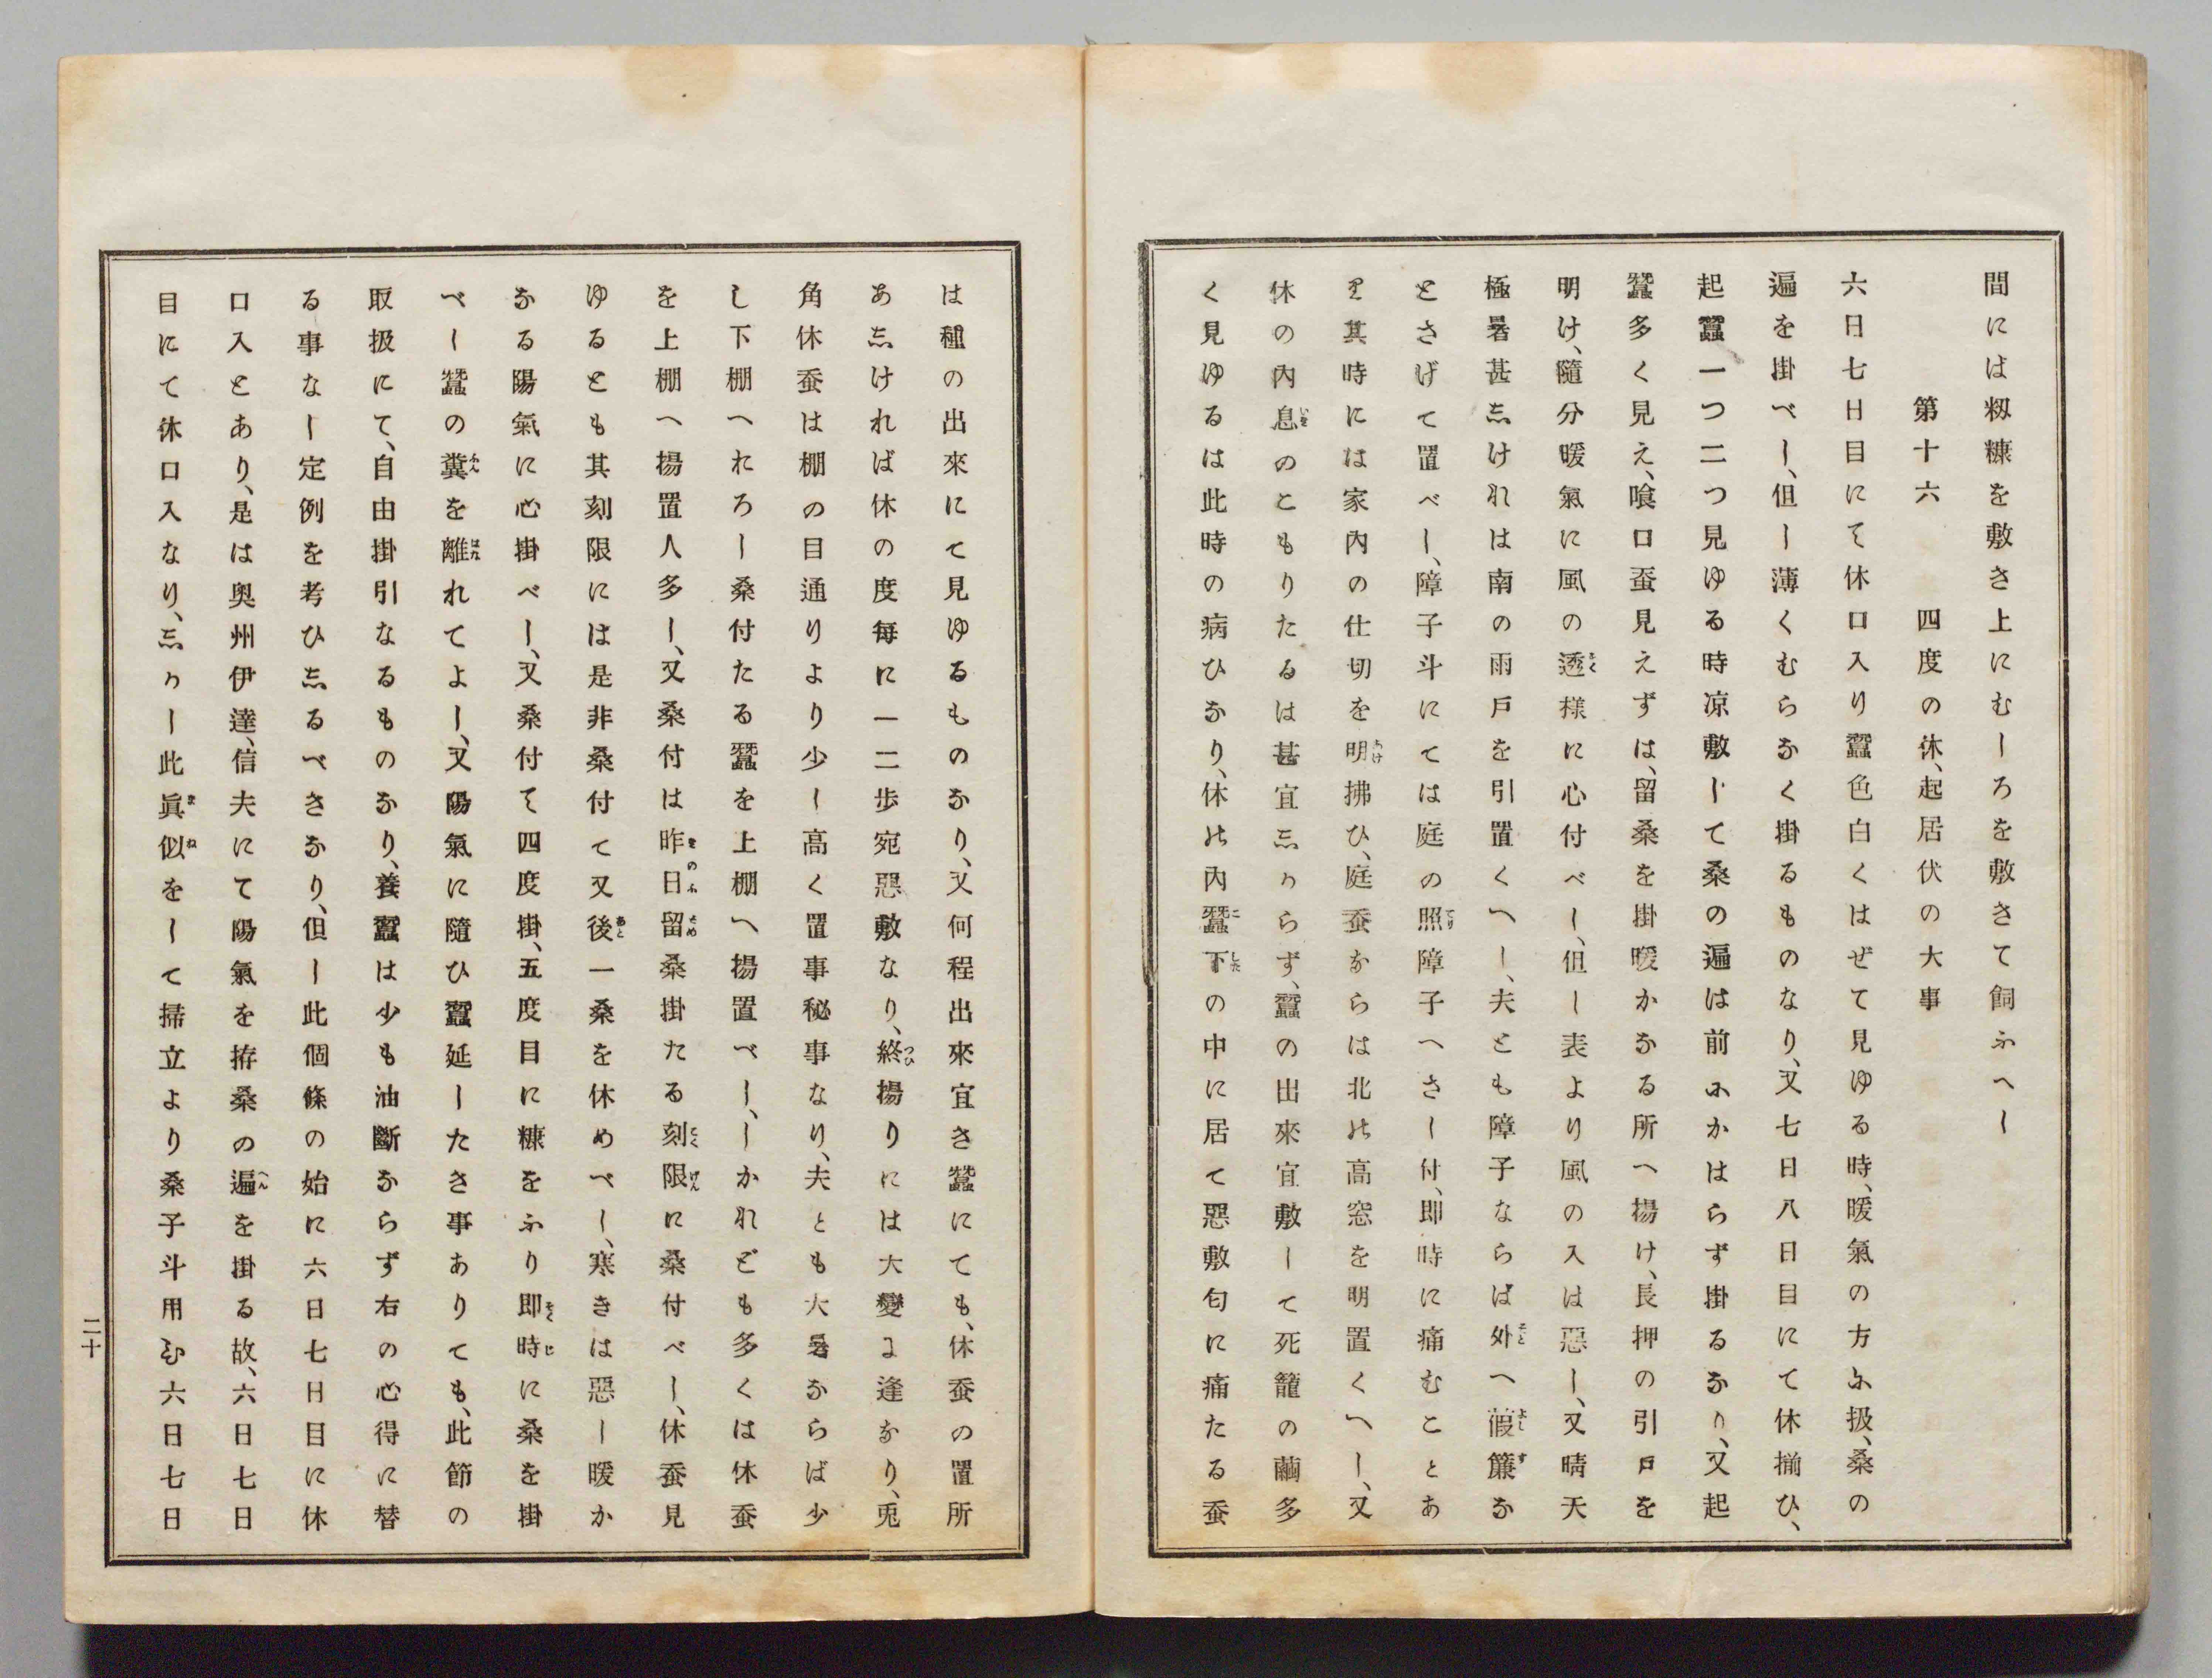 間には籾糠を敷き上にむしろを敷きて飼ふへし
第十六　四度の休、起居伏の大事
六日七日目にて休口入り蠶色白くはぜて見ゆる時、暖氣の方ふ扱、桑の
遍を掛べし、但し薄くむらなく掛るものなり、又七日八日目にて休揃ひ、
起蠶一つ二つ見ゆる時凉敷して桑の遍は前ふかはらず掛るなり、又起
蠶多く見え、喰口蚕見えずは、留桑を掛暖かなる所へ揚け、長押の引戸を
明け、隨分暖氣に風の透様に心付べし、但し表より風の入は惡し、又晴天
極暑甚志ければ南の雨戸を引置くへし、夫とも障子ならば外へ葭簾な
とさげて置べし、障子斗にては庭の照障子へさし付、即時に痛むことあ
り其時には家内の仕切を明拂ひ、庭蚕ならは北の高窓を明置くへし、又
休の内息のこもりたるは甚宜志からず、蠶の出來宜敷して死籠の繭多
く見ゆるは此時の病ひなり、休の内蠶下の中に居て惡敷匂に痛たる蚕
は種の出來にて見ゆるものなり、又何程出來宜き蠶にても、休蚕の置所
あ志ければ休の度毎に一二歩宛惡敷なり、終揚りには大變に逢なり、兎
角休蚕は棚の目通りより少し高く置事秘事なり、夫とも大暑ならば少
し下棚へれろし桑付たる蠶を上棚へ揚置べし、しかれども多くは休蚕
を上棚へ揚置人多し、又桑付は昨日留桑掛たる刻限に桑付べし、休蚕見
ゆるとも其刻限には是非桑付て又後一桑を休めべし、寒きは惡し暖か
なる陽氣に心掛べし、又桑付て四度掛、五度目に糠をふり即時に桑を掛
べし蠶の糞を離れてよし、又陽氣に隨ひ蠶延したき事ありても、此節の
取扱にて、自由掛引なるものなり、養蠶は少も油斷ならず右の心得に替
る事なし定例を考ひ志るべきなり、但し此個條の始に六日七日目に休
口入とあり、是は奥州伊達、信夫にて陽氣を拵桑の遍を掛る故、六日七日
目にて休口入なり、志かし此眞似をして掃立より桑子斗用ひ六日七日
二十